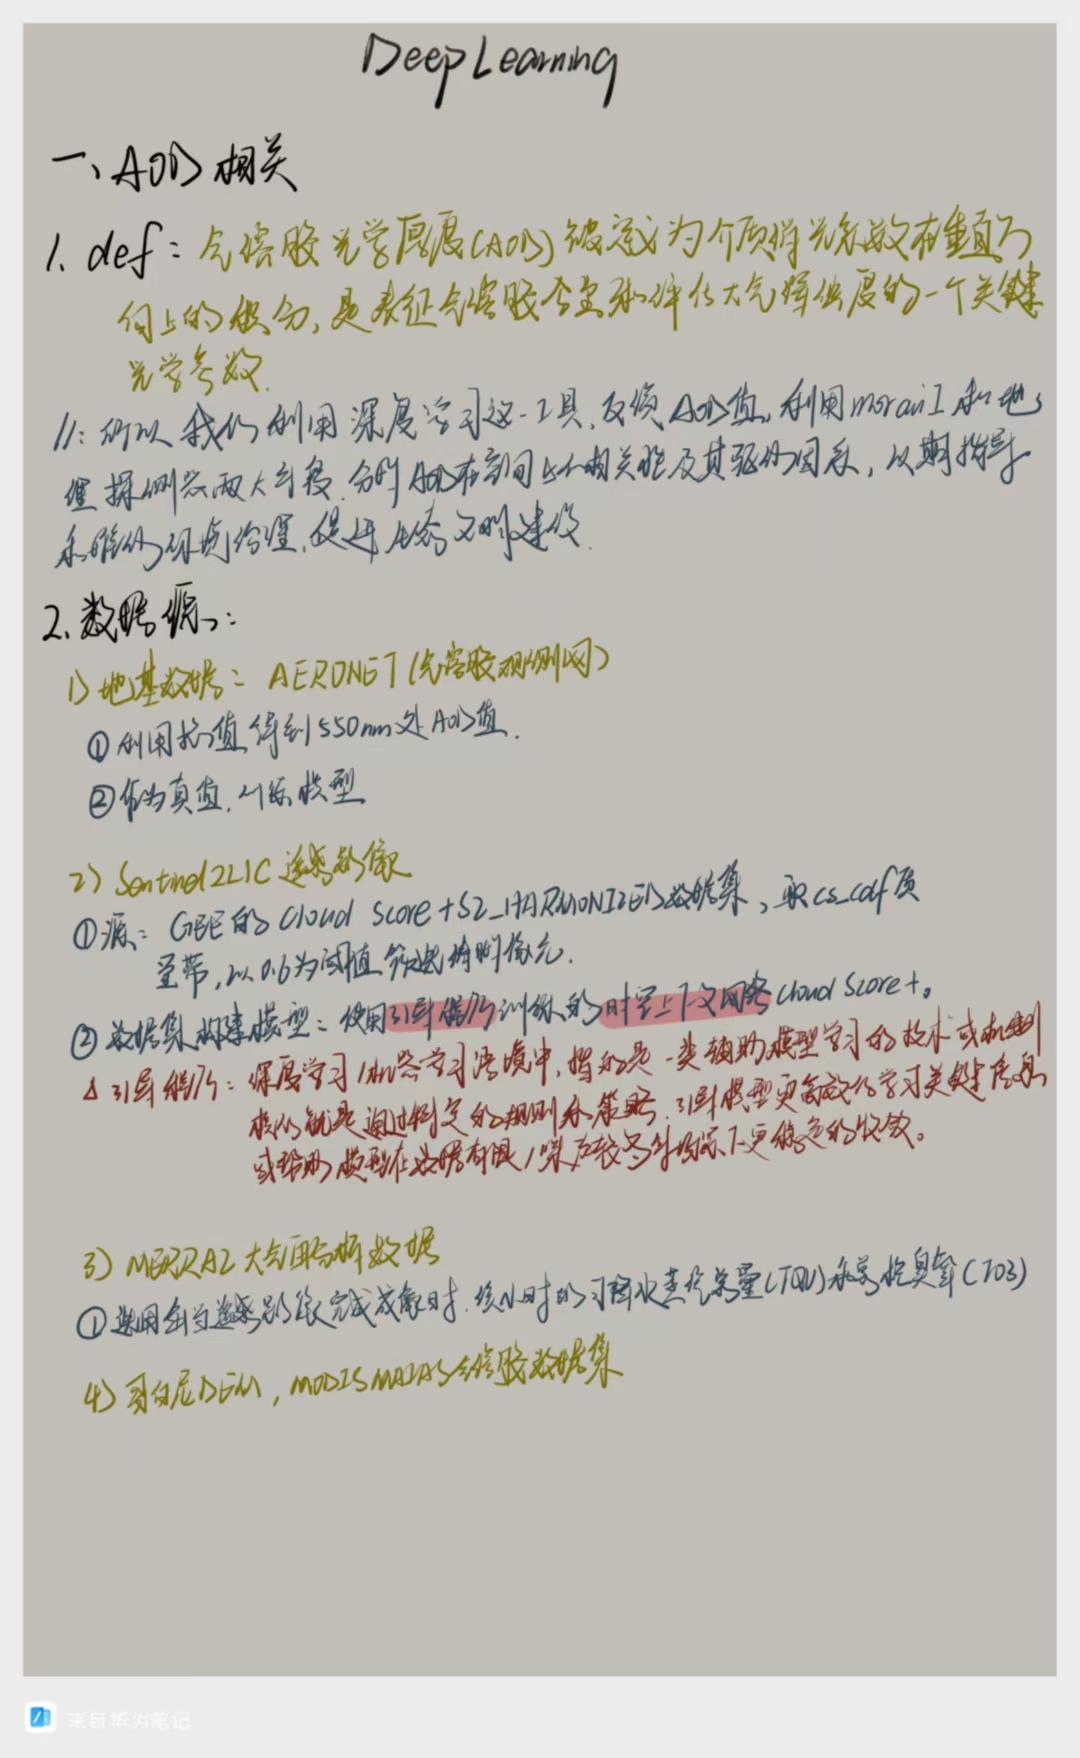 Deep Learning
一、AOD相关
1. def：气溶胶光学厚度(AOD)被定义为介质消光系数在垂直方
向上的积分,是表征气溶胶含量和评估大气浑浊度的一个关键
光学参数.
//:所以我们利用深度学习这一工具,反演AOD值,利用moran I和地
理探测器两大手段,分析AOD在空间上的相关性及其驱动因素,以期指导
环境治理,促进生态文明建设.
2.数据源：
1)地基数据：AERONET(气溶胶观测网)
①利用插值得到550nm处AOD值.
②作为真值,训练模型
2) Sentinel2L1C遥感影像
①源：GEE的Cloud Score+S2_HARMONIZED数据集,取cs_cdf质
量带,以0.6为阈值筛选晴朗像元.
②数据集构建模型：使用引导程序训练的时空上下文网络Cloud Score+。
△引导程序：深度学习/机器学习语境中,指的是一类辅助模型学习的技术或机制
核心就是通过特定的规则和策略,引导模型更高效的学习关键信息
或帮助模型在数据有限/噪声较多等场景下更稳定的收敛。
3) MERRA2大气再分析数据
①选用在与遥感影像完成成像时,该小时的可降水蒸汽总量(TQV)和总柱臭氧(TO3)
4)哥白尼DEM,MODIS MAIAC气溶胶数据集
来自华为笔记